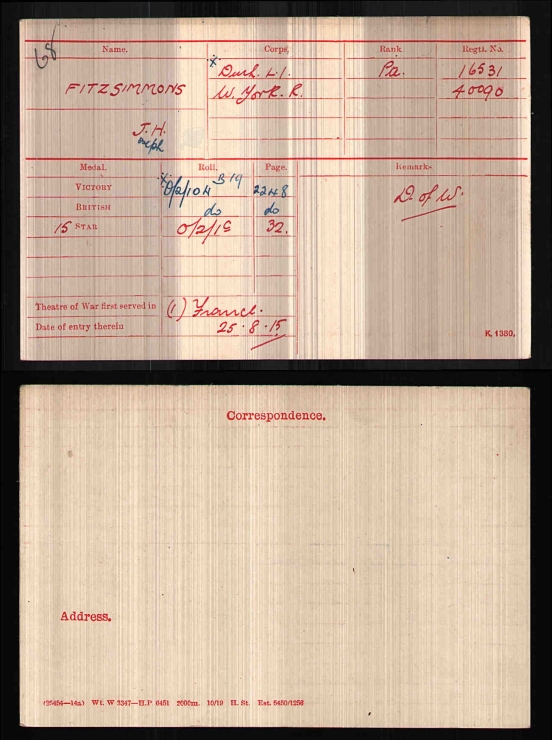 68
Name. Corps. Rank Regtl. No.
FITZSIMMONS
x Durh. L.I. Pte. 16531
W. York. R. 40090
J. H.
oseph
Medal. Roll. Page.
VICTORY x O/2/104 B19 2248
BRITISH do do
15 STAR O/2/1C 32.
Remarks
D. of W.
Theatre of War first served in (1) France.
Date of entry therein 25.8.15
K. 1380.
Correspondence.
Address.
(35454—14a) Wt. W 3347—H.P 6451 2000m. 10/19 H. St. Est. 5450/1256